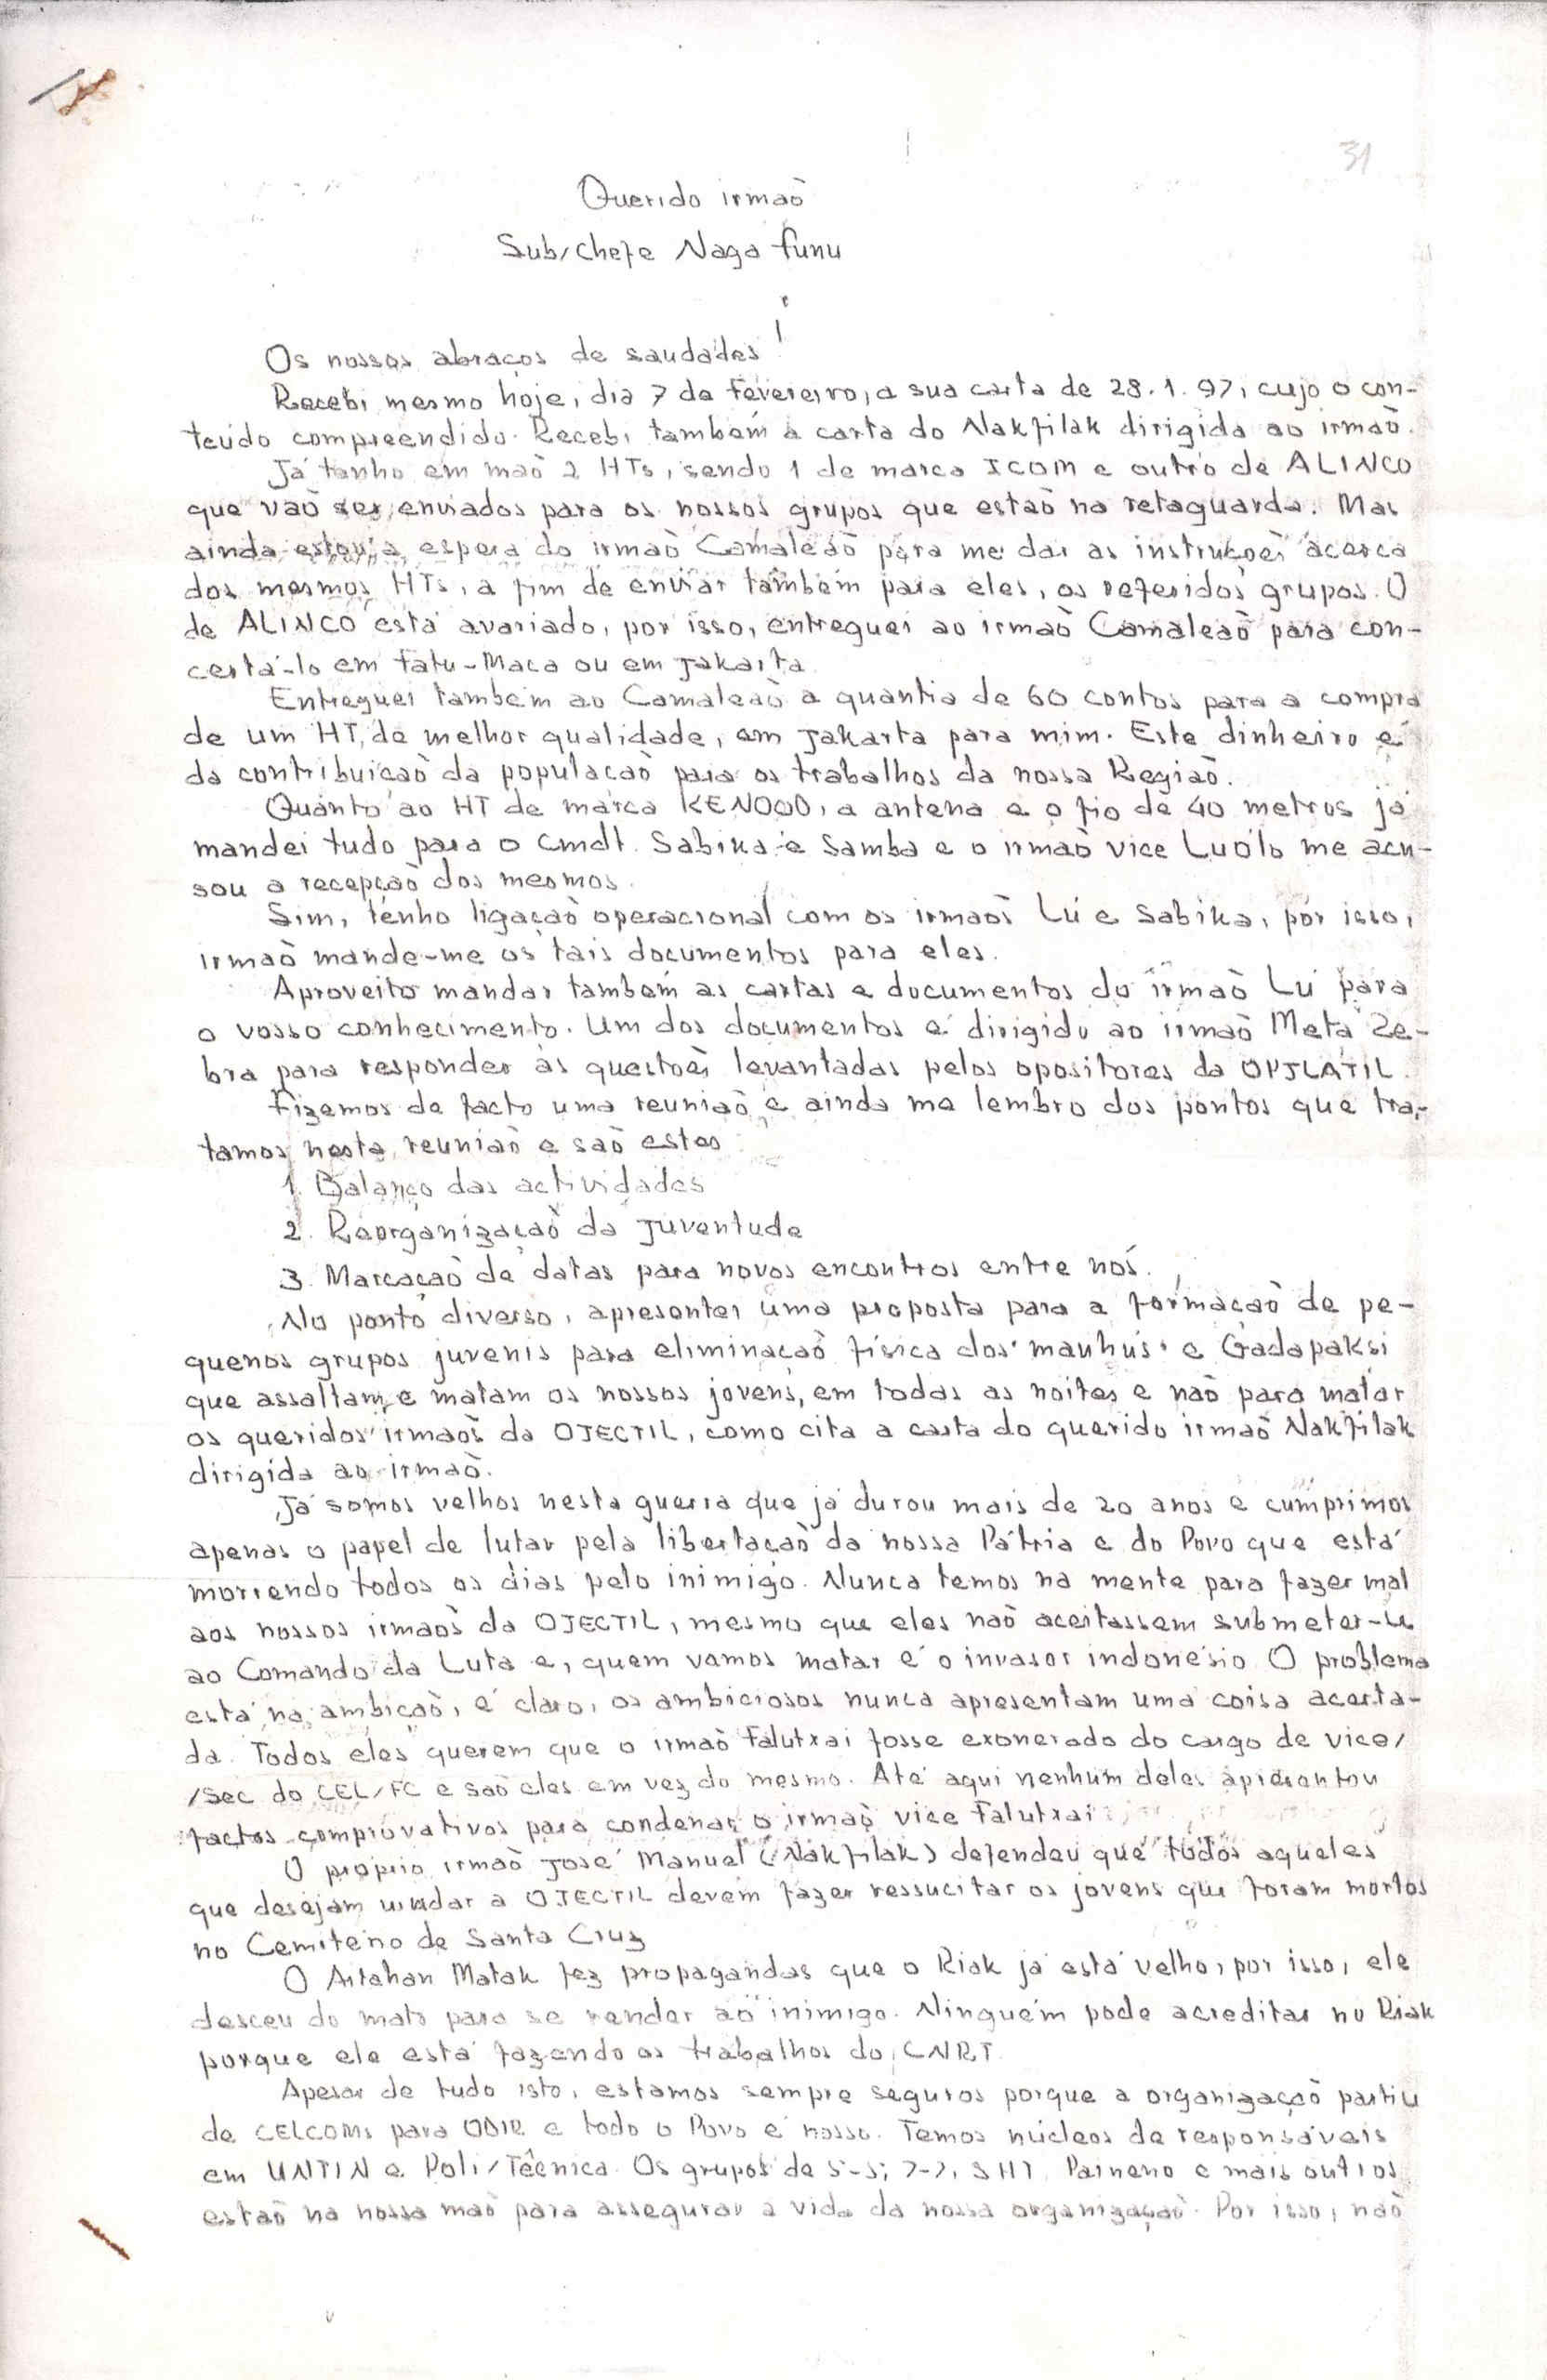 31
Querido irmaõ
Sub/chefe Naga funu
Os nossos abraços de saudades!
Recebi mesmo hoje, dia 7 de Fevereiro, a sua carta de 28.1.97, cujo o con-
teúdo compreendido. Recebi também a carta do Nakfilak dirigida ao irmaõ.
Já tenho em maõ 2 HTs, sendo 1 de marca ICOM e outro de ALINCO
que vaõ ser enviados para os nossos grupos que estaõ na retaguarda. Mas
ainda estou à espera do irmaõ Camaleaõ para me dar as instruçoẽs àcerca
dos mesmos HTs, a fim de enviar também para eles, os referidos grupos. O
de ALINCO está avariado, por isso, entreguei ao irmaõ Camaleaõ para con-
certá-lo em Fatu-Maca ou em Jakarta
Entreguei também ao Camaleaõ a quantia de 60 contos para a compra
de um HT, de melhor qualidade, em Jakarta para mim. Este dinheiro é
da contribuiçaõ da populaçaõ para os trabalhos da nossa Regiaõ.
Quanto ao HT de marca KENOOD, a antena e o fio de 40 metros já
mandei tudo para o Cmdt. Sabika e Samba e o irmaõ vice Luólo me acu-
sou a recepçaõ dos mesmos.
Sim, tenho ligaçaõ operacional com os irmaõs Lú e Sabika, por isso,
irmaõ mande-me os tais documentos para eles.
Aproveito mandar também as cartas e documentos do irmaõ Lú para
o vosso conhecimento. Um dos documentos é dirigido ao irmaõ Meta Ze-
bra para responder às questoẽs levantadas pelos opositores da OPJLATIL.
Fizemos de facto uma reuniaõ e ainda me lembro dos pontos que tra-
tamos nesta reuniaõ e saõ estes
1. Balanço das actividades
2. Reorganizaçaõ da Juventude
3. Marcaçaõ de datas para novos encontros entre nós.
No ponto diverso, apresentei uma proposta para a formaçaõ de pe-
quenos grupos juvenis para eliminaçaõ física dos "mauhús" e Gadapaksi
que assaltam e matam os nossos jovens, em todas as noites e naõ para matar
os queridos irmaõs da OJECTIL, como cita a carta do querido irmaõ Nakfilak
dirigida ao irmaõ.
Já somos velhos nesta guerra que já durou mais de 20 anos e cumprimos
apenas o papel de lutar pela libertaçaõ da nossa Pátria e do Povo que está
morrendo todos os dias pelo inimigo. Nunca temos na mente para fazer mal
aos nossos irmaõs da OJECTIL, mesmo que eles naõ aceitassem submeter-se
ao Comando da Luta e, quem vamos matar é o invasor indonésio. O problema
está na ambiçaõ, é claro, os ambiciosos nunca apresentam uma coisa acerta-
da. Todos eles querem que o irmaõ Falutxai fosse exonerado do cargo de vice/
/sec do CEL/FC e saõ eles em vez do mesmo. Até aqui nenhum deles apresentou
factos comprovativos para condenar o irmaõ vice Falutxai
O próprio irmaõ José Manuel (Nakfilak) defendeu que todos aqueles
que desejam mudar a OJECTIL devem fazer ressucitar os jovens que foram mortos
no Cemitério de Santa Cruz
O Aitahan Matak fez propagandas que o Riak já está velho, por isso, ele
desceu do mato para se render ao inimigo. Ninguém pode acreditar no Riak
porque ele está fazendo os trabalhos do CNRT.
Apesar de tudo isto, estamos sempre seguros porque a organizaçaõ partiu
de CELCOMs para ODIR e todo o Povo é nosso. Temos núcleos de responsáveis
em UNTIN e Poli/Técnica. Os grupos de 5-5; 7-7, SHT, Paineno e mais outros
estaõ na nossa maõ para assegurar a vida da nossa organizaçaõ. Por isso, naõ